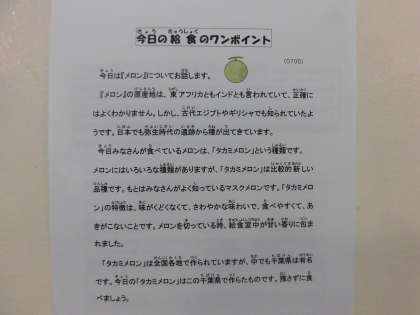 今日の給食のワンポイント
(0706)
今日は『メロン』についてお話します。
『メロン』の原産地は、東アフリカともインドとも言われていて、正確に
はよくわかりません。しかし、古代エジプトやギリシャでも知られていたよ
うです。日本でも弥生時代の遺跡から種が出てきています。
今日みなさんが食べているメロンは、「タカミメロン」という種類です。
メロンにはいろいろな種類がありますが、「タカミメロン」は比較的新しい
品種です。もとはみなさんがよく知っているマスクメロンです。「タカミメロ
ン」の特徴は、味がくどくなくて、さわやかな味わいで、食べやすくて、あ
きがこないことです。メロンを切っている時、給食室中が甘い香りに包ま
れました。
「タカミメロン」は全国各地で作られていますが、中でも千葉県は有名
です。今日の「タカミメロン」はこの千葉県で作られたものです。残さずに食
べましょう。